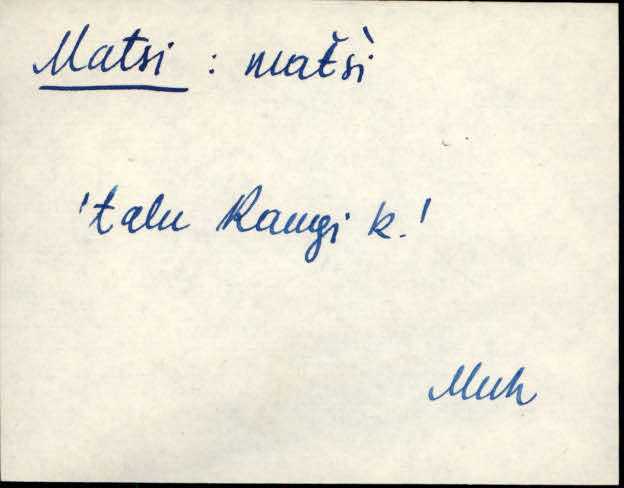 Matsi : mat̆sì
'talu Raugi k.'
Muh